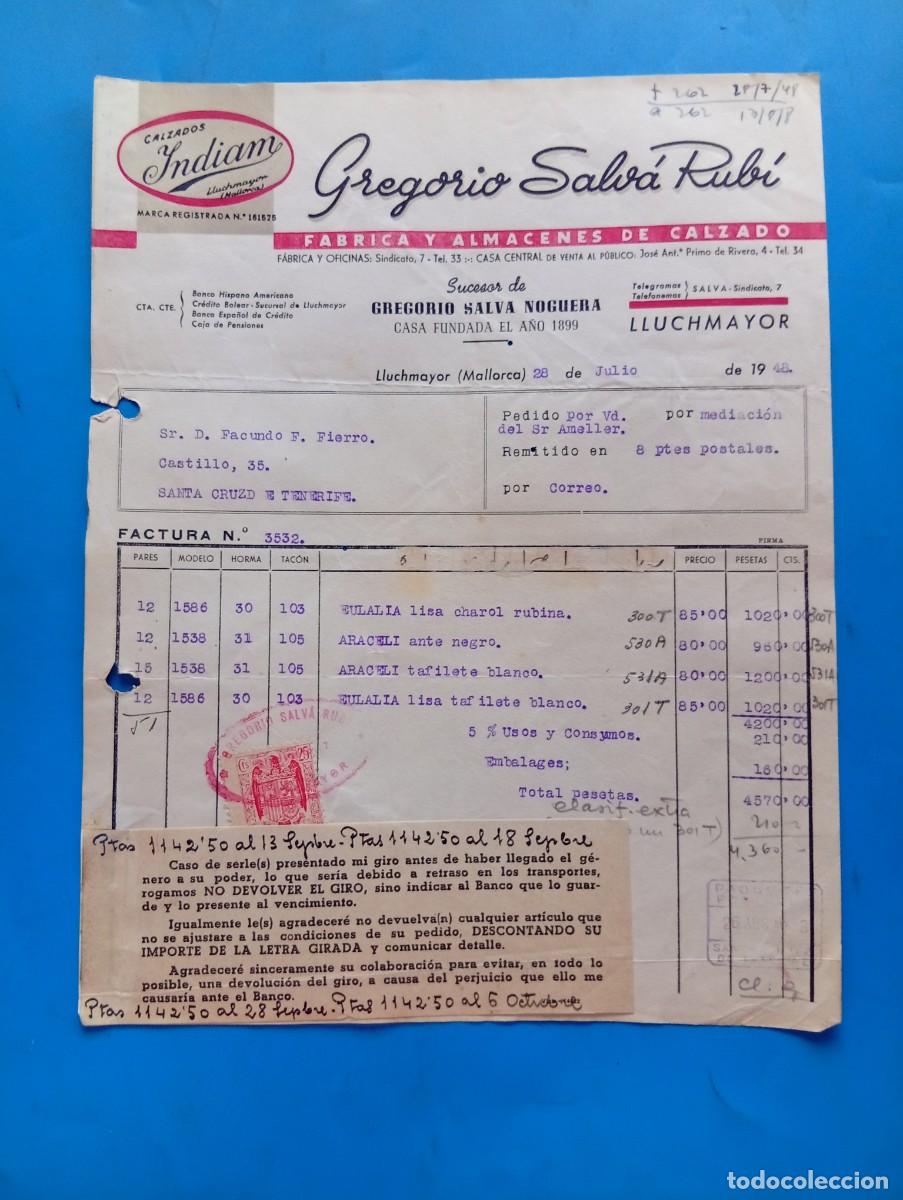 + 262 28/7/48
a 262
CALZADOS
Indiam
Lluchmayor
(Mallorca)
MARCA REGISTRADA N.º 161575
Gregorio Salvá Rubí
FABRICA Y ALMACENES DE CALZADO
FÁBRICA Y OFICINAS: Sindicato, 7 - Tel. 33 :-: CASA CENTRAL DE VENTA AL PÚBLICO: José Ant.º Primo de Rivera, 4 - Tel. 34
CTA. CTE.
Banco Hispano Americano
Crédito Balear - Sucursal de Lluchmayor
Banco Español de Crédito
Caja de Pensiones
Sucesor de
GREGORIO SALVA NOGUERA
CASA FUNDADA EL AÑO 1899
Telegramas
Telefonemas
SALVA - Sindicato, 7
LLUCHMAYOR
Lluchmayor (Mallorca) 28 de Julio de 1948.
Sr. D. Facundo F. Fierro.
Castillo, 35.
SANTA CRUZD E TENERIFE.
Pedido por Vd. por mediación
del Sr Ameller.
Remitido en 8 ptes postales.
por Correo.
FACTURA N.º 3532.
FIRMA
PARES MODELO HORMA TACÓN PRECIO PESETAS CTS.
12 1586 30 103 EULALIA lisa charol rubina. 300T 85'00 1020'00 300T
12 1538 31 105 ARACELI ante negro. 530A 80'00 960'00 530A
15 1538 31 105 ARACELI tafilete blanco. 531A 80'00 1200'00 531A
12 1586 30 103 EULALIA lisa tafilete blanco. 301T 85'00 1020'00 301T
51
4200'00
5 % Usos y Consumos. 210'00
Embalages; 160'00
Total pesetas. 4570'00
GREGORIO SALVÁ RUBÍ
25
cts
clasif. extra
un 301T) 210
4,360 -
Ptas 1142'50 al 13 Sepbre.-Ptas 1142'50 al 18 Sepbre
Caso de serle(s) presentado mi giro antes de haber llegado el gé-
nero a su poder, lo que sería debido a retraso en los transportes,
rogamos NO DEVOLVER EL GIRO, sino indicar al Banco que lo guar-
de y lo presente al vencimiento.
Igualmente le(s) agradeceré no devuelva(n) cualquier artículo que
no se ajustare a las condiciones de su pedido, DESCONTANDO SU
IMPORTE DE LA LETRA GIRADA y comunicar detalle.
Agradeceré sinceramente su colaboración para evitar, en todo lo
posible, una devolución del giro, a causa del perjuicio que ello me
causaría ante el Banco.
Ptas 1142'50 al 28 Sepbre.-Ptas 1142'50 al 6 Octubre
todocoleccion